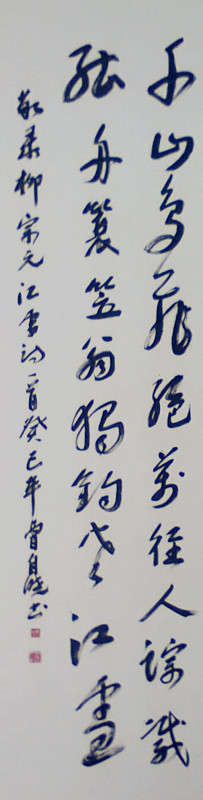 千山鳥飛絕萬徑人踪滅
孤舟蓑笠翁獨釣寒江雪
敬录柳宗元江雪詩一首癸巳年曾自晓书